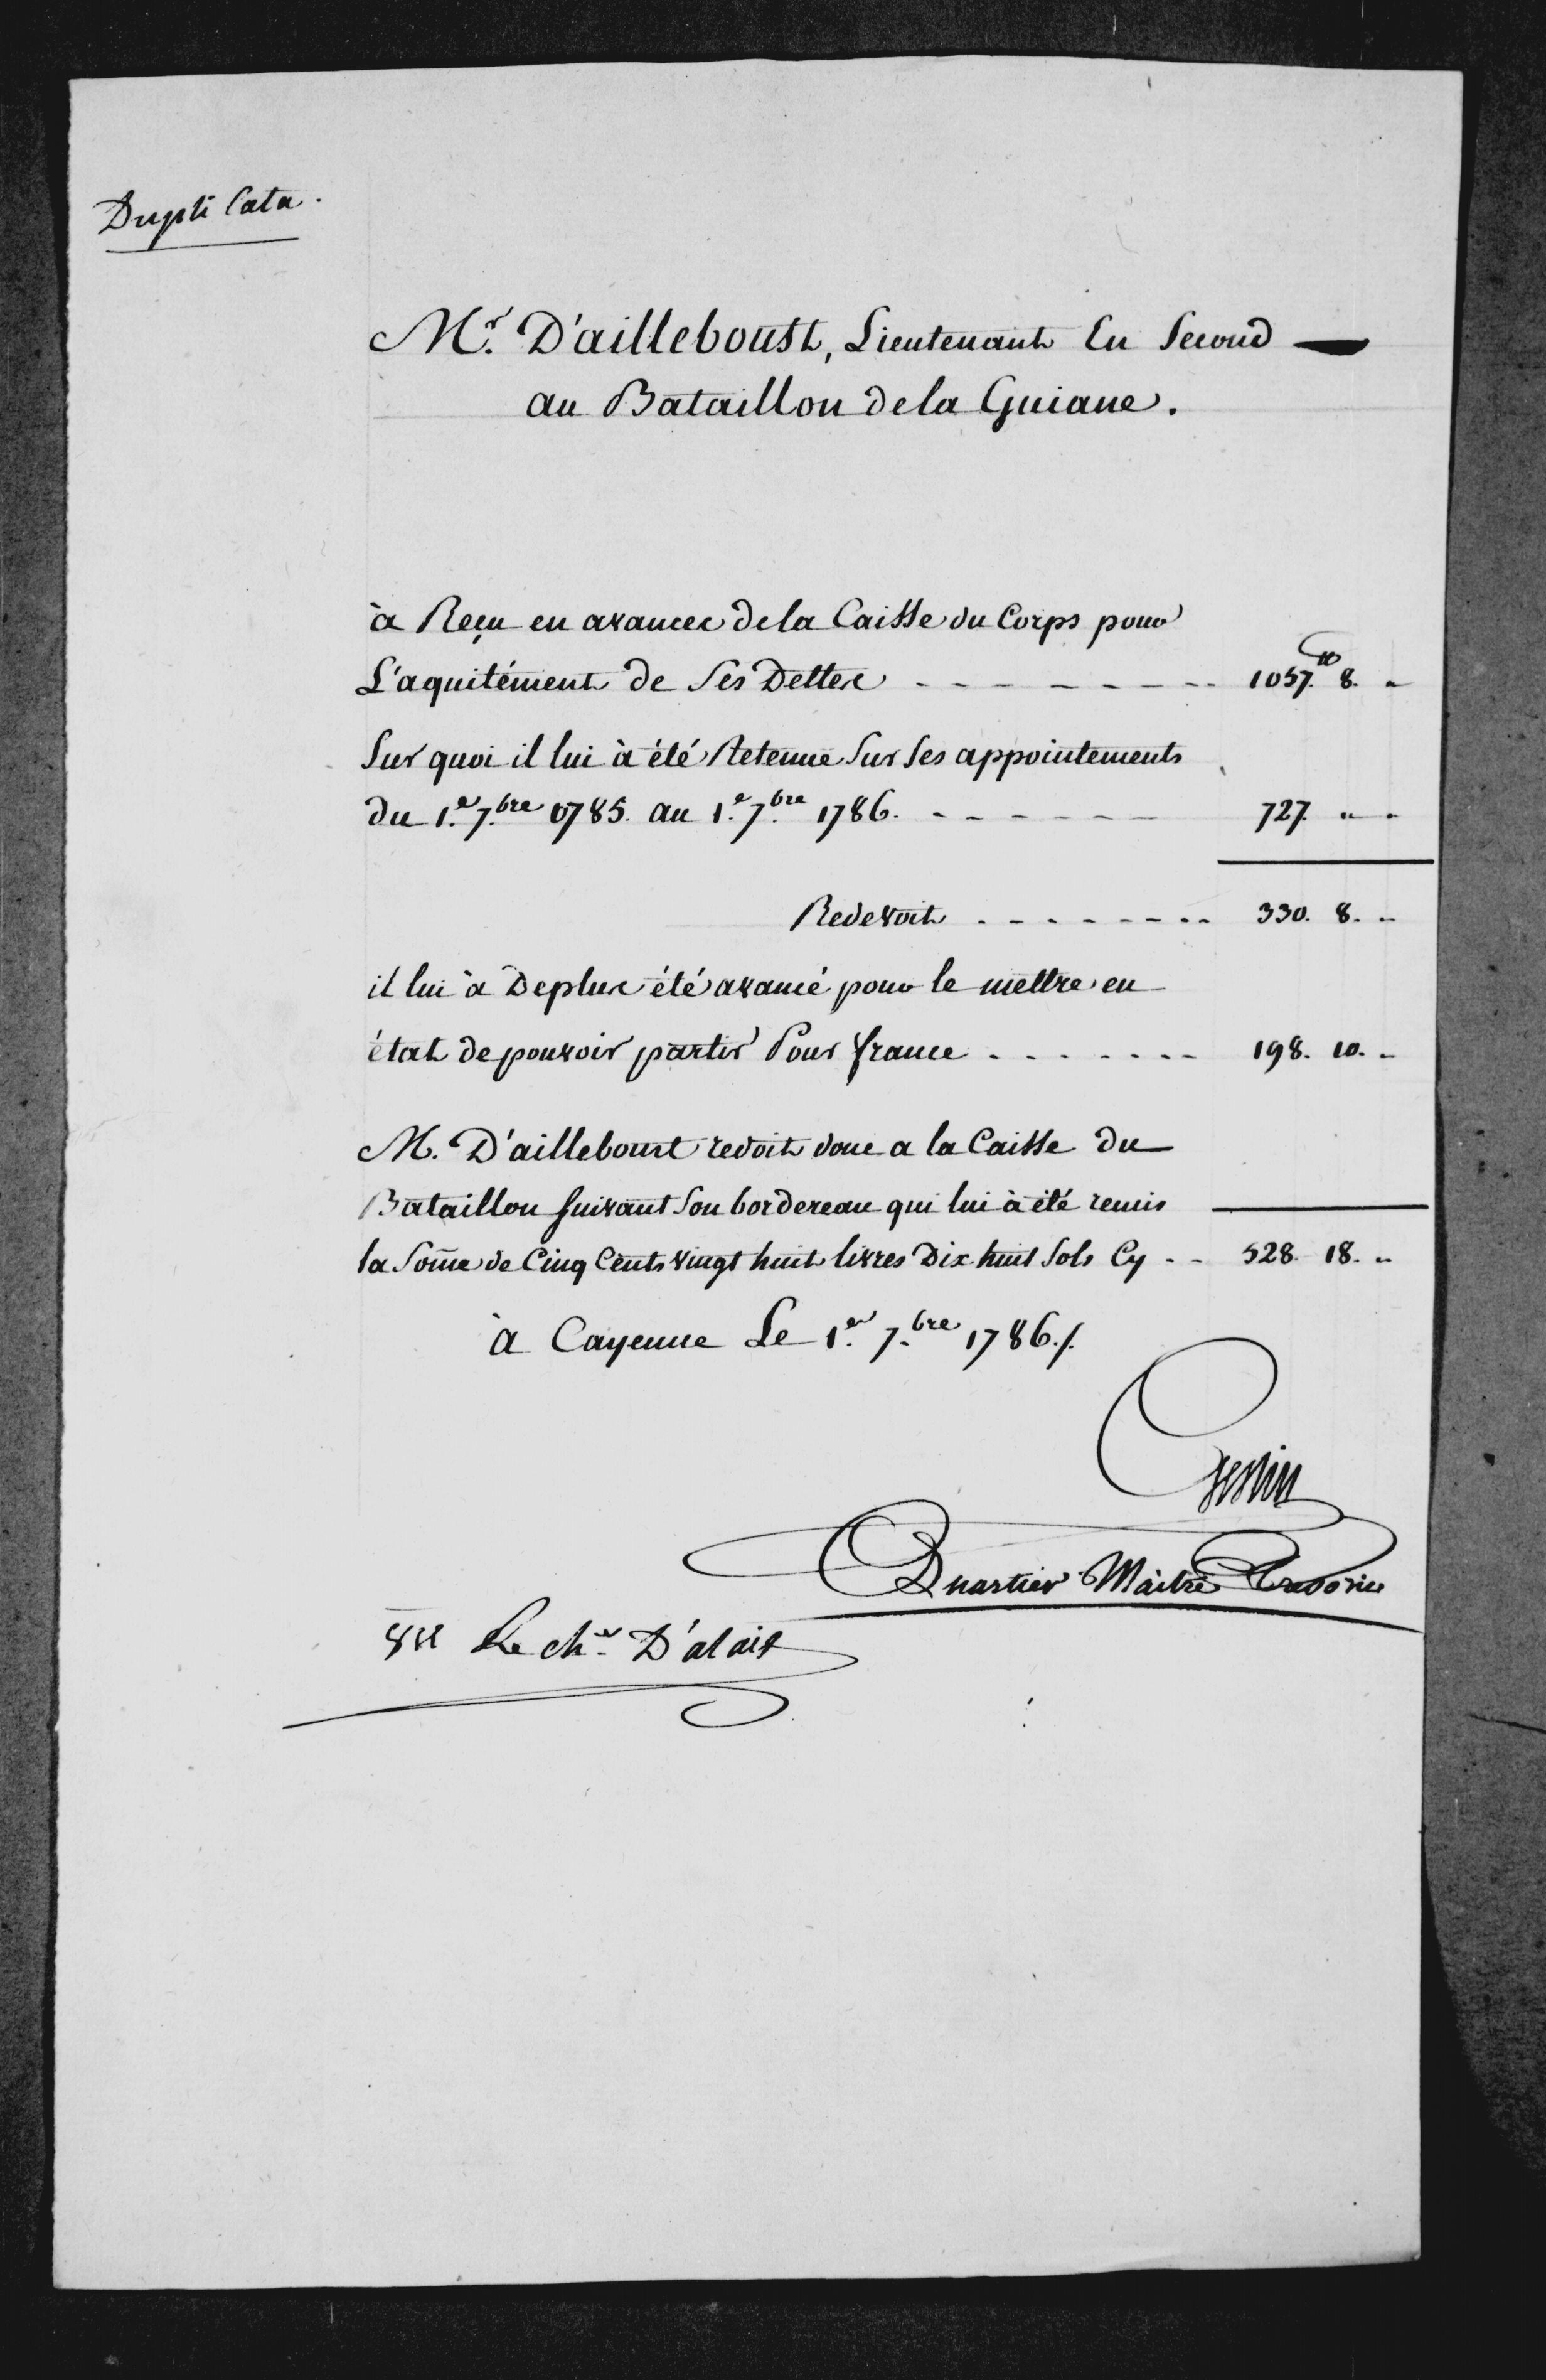 Dupli Cata.
Mr. D'ailleboust, Lieutenant En Second
au Bataillon de la Guiane.
à Reçu en avances de la Caisse du Corps pour
L'aquitément de Ses Dettes - - - - - - - - 1057.lt 8. "
Sur quoi il lui à été Retenue Sur Ses appointements
du 1.er 7.bre 1785. au 1.er 7.bre 1786. - - - - - - 727. " "
Redevoit - - - - - - - - 330. 8. "
il lui à Deplus été avancé pour le mettre en
état de pouvoir partir Pour france - - - - - - - 198. 10. "
M. D'ailleboust redoit donc a la Caisse du
Bataillon suivant Son bordereau qui lui à été remis
la Some de Cinq Cents vingt huit livres Dix huit Sols Cy - - 528. 18. "
à Cayenne Le 1.er 7.bre 1786./.
Quartier Maitre Trésorier
Vu Le ch.er D'alais